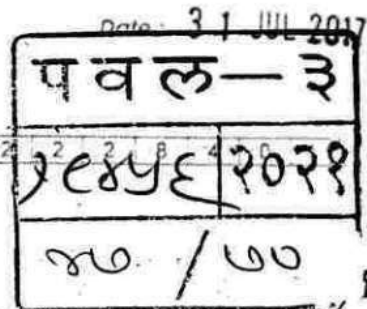 Date: 3 1 JUL 2017
प व ल — ३
2 2 2 8 4 0
२०२१
४७ / ७०